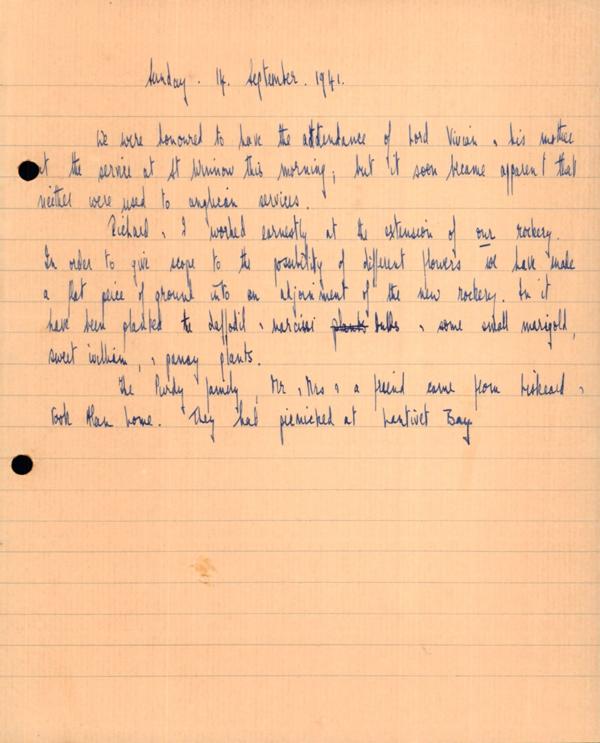 Sunday. 14. September. 1941.
We were honoured to have the attendance of Lord Vivian, & his mother
at the service at St Winnow this morning; but it soon became apparent that
neither were used to anglican services.
Richard & I worked earnestly at the extension of our rockery.
In order to give scope to the possibility of different flowers we have made
a flat peice of ground into an adjoinment of the new rockery. In it
have been planted the daffodil & narcissi plants bulbs & some small marigold,
sweet william, & pansy plants.
The Purdy family, Mr & Mrs & a freind came from Liskeard &
took Alan home. They had picnicked at Lantivet Bay